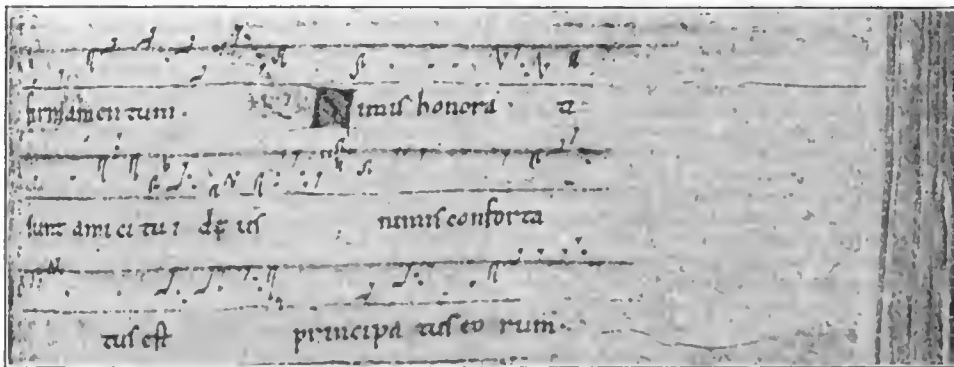 firmamentum. Nimis honora ti
sunt amici tui ds us nimis conforta
tus est principa tus eo rum.